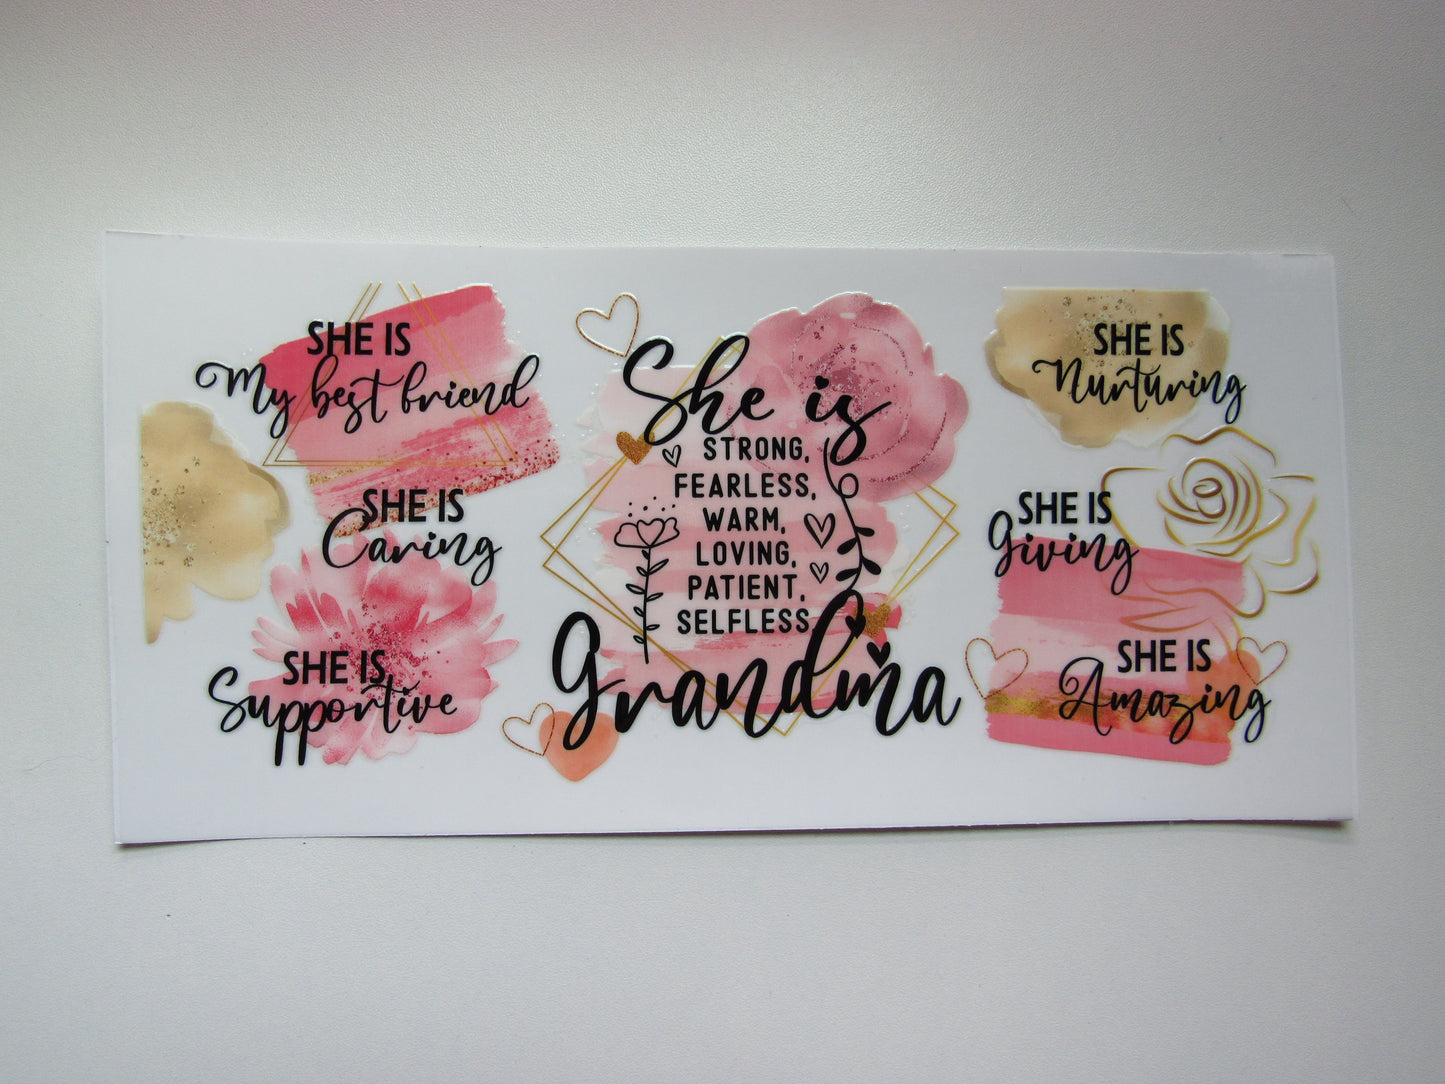 SHE IS
My best friend
SHE IS
Caring
SHE IS
Supportive
She is
STRONG,
FEARLESS,
WARM,
LOVING,
PATIENT,
SELFLESS
Grandma
SHE IS
Nurturing
SHE IS
Giving
SHE IS
Amazing